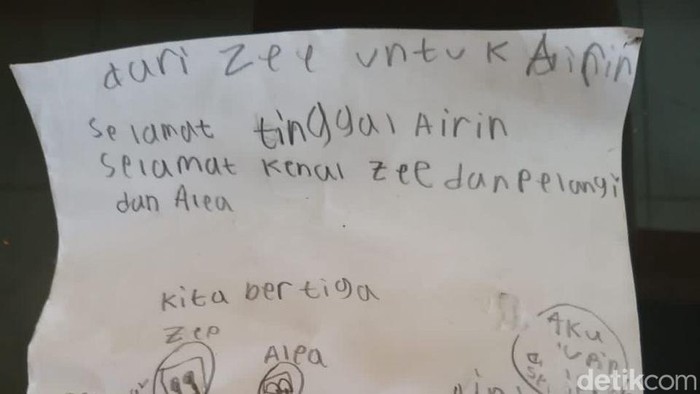 dari Zee untuk Airin
Selamat tinggal Airin
Selamat kenal Zee dan Pelangi
dan Alea
Kita bertiga
Zee
Alea
AKU
detikcom